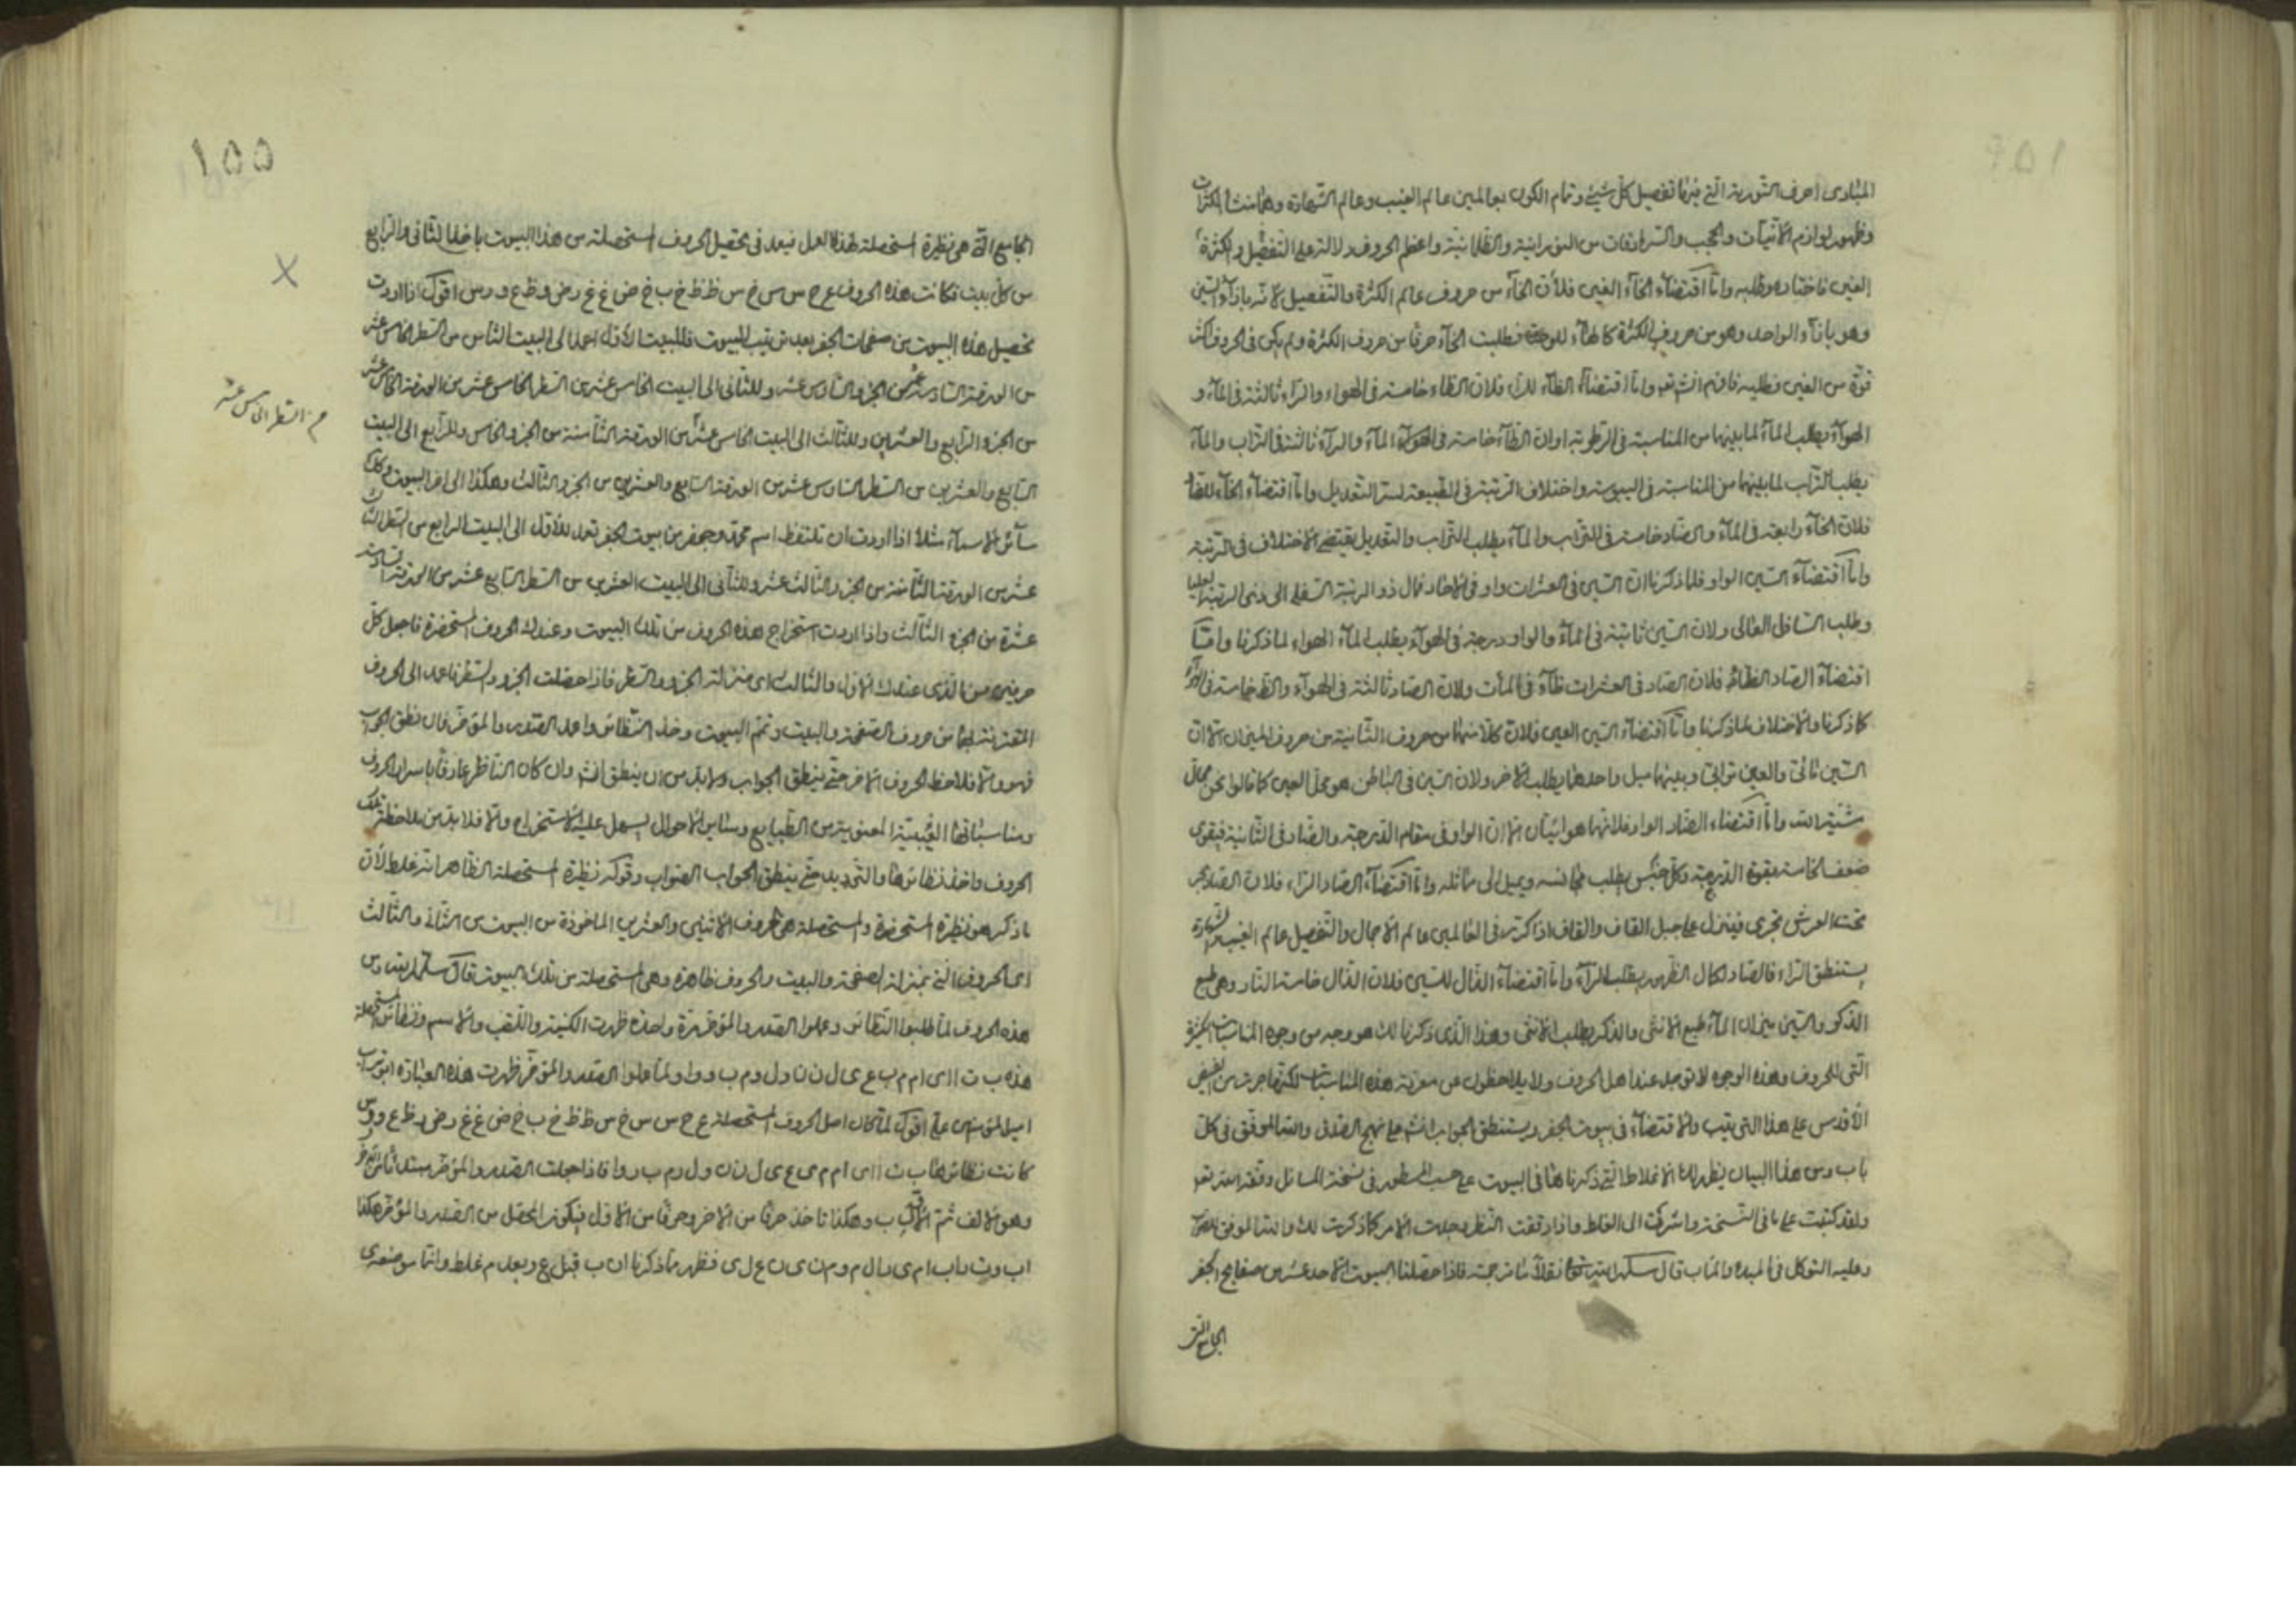 المبادى احرف النورية التى فيها تفصيل كل شيئ وتمام الكون بعالمين عالم الغيب وعالم الشهادة وهما منشأ الكثرات
وظهور لوازم الانيات والحجب والسرادقات من النورانية والظلمانية واعظم الحروف دلالة على التفصيل والكثرة
الغين فاختاره وطلبه واما اقتضاء الخاء الغين فلان الخاء من حروف عالم الكثرة والتفصيل لانه بازاء السين
وهو بازاء الواحد وهو من حروف الكثرة كالهاء للوحدة فطلبت الخاء حرفا من حروف الكثرة ولم يكن فى الحروف اكثر
قوة من الغين فطلبه فافهم انشاء واما اقتضاء الظاء للراء فلان الظاء خامسة فى الهواء والراء ثالثة فى الماء و
الهواء يطلب الماء لما بينهما من المناسبة فى الرطوبة اوان الظاء خامسة فى الماء والراء ثالثة فى التراب والماء
يطلب التراب لما بينهما من المناسبة فى اليبوسة واختلاف الرتبة فى الطبيعة لسر التعديل واما اقتضاء الخاء للضاد
فلان الخاء رابعة فى الماء والضاد خامسة فى التراب والماء يطلب التراب والتعديل يقتضى الاختلاف فى الرتبة
واما اقتضاء السين الواو فلما ذكرنا ان السين فى العشرات واو فى الاحاد فمال ذو الرتبة السفلى الى ذى الرتبة العليا
وطلب السافل العالى ولان السين ثانية فى الماء والواو درجة فى الهواء يطلب الماء الهواء لما ذكرنا واما
اقتضاء الصاد الظاء فلان الصاد فى العشرات ظاء فى المئات ولان الصاد ثالثة فى الهواء والظاء خامسة فى الهواء
كما ذكرنا والاختلاف لما ذكرنا واما اقتضاء السين العين فلان كلا منهما من حروف الثانية من حروف الميزان الا ان
السين مائى والعين ترابى وبينهما ميل واحدهما يطلب الاخر ولان السين فى الباطن هو محل العين كما قالوا نحن محال
مشية الله واما اقتضاء الضاد الواو فلانهما هوائيان الا ان الواو فى مقام الدرجة والضاد فى الثانية فيقوى
ضعف الخامسة بقوة الدرجة وكل جنس يطلب مجانسه ويميل الى مماثله واما اقتضاء الصاد الراء فلان الصاد بحر
تحت العرش تجرى فينزل على جبل القاف والقاف اذا كرته فى العالمين عالم الاجمال والتفصيل عالم الغيب والشهادة
يستنطق الراء فالصاد لكمال الظهور يطلب الراء واما اقتضاء الذال للسين فلان الذال خامسة النار وهى طبع
الذكر والسين ميزان الماء طبع الانثى والذكر يطلب الانثى وهذا الذى ذكرنا لك هو وجه من وجوه المناسبات الكثيرة
التى للحروف وهذه الوجوه لا توجد عند اهل الحروف ولا يلاحظون عن معرفة هذه المناسبات لكنها جرت من الفيض
الأقدس على هذا الترتيب والاقتضاء فى بيوت الجفر ويستنطق الجواب انشاء على نهج الصدق والله الموفق فى كل
باب ومن هذا البيان يظهر لك الاغلاط التى ذكرناها فى البيوت على حسب المسطور فى نسخة المسائل وفقه الله تعالى
ولقد كتبت على ما فى النسخة واشركت الى الغلط واذا دققت النظر وجدت الامر كما ذكرت لك والله الموفق للصواب
وعليه التوكل فى المبدء والماب قال سلمه الله تعالى نقلا ما ترجمته فاذا حصلنا البيوت الاحد عشر من صفايح الجفر
الجامع التى
١٥٥
الجامع التى هى نظيرة المستحصلة لهذا العمل فبعد فى تحصيل الحروف المستحصلة من هذا البيوت باخذ الثانى والرابع
من كل بيت فكانت هذه الحروف ع ح س س خ س ظ ظ خ ب خ ض غ غ ر ض و ظ ع و و س اقول اذا اردت
تحصيل هذه البيوت من صفحات الجفر بعد ترتيب البيوت فللبيت الأول اعمد الى البيت الثامن من السطر الخامس عشر
من الورقة السادسة عشر من الجزء السادس عشر وللثانى الى البيت الخامس عشر من السطر الخامس عشر من الورقة الخامس عشر
من الجزء الرابع والعشرين وللثالث الى البيت الخامس عشر من الورقة الثامنة من الجزء الخامس وللرابع الى البيت
من السطر الخامس عشر
السابع والعشرين من السطر السادس عشر من الورقة السابع والعشرين من الجزء الثالث وهكذا الى اخر البيوت وكذلك
سائر الاسماء مثلا اذا اردت ان تلتقط اسم محمد وجعفر من بيوت الجفر تعمد للاول الى البيت الرابع من السطر الثا
عشر من الورقة الثامنة من الجزء الثالث عشر وللثانى الى البيت العشرين من السطر السابع عشر من الورقة السادسة
عشرة من الجزء الثالث واذا اردت استخراج هذه الحروف من تلك البيوت وعندك الحروف المستحضرة فاجعل كل
حرفين من الذى عندك الاول والثالث اى منزلة الجزء والسطر فاذا حصلت الجزء والسطر فاعمد الى الحروف
المقترنة لها من حروف الصفحة والبيت وتمم البيوت وخذ النظائر واعمد الصدر والمؤخر فان نطق الجواب
فهو والا فلاحظ الحروف الاخر حتى ينطق الجواب ولابد من ان ينطق انشاء وان كان الناظر عارفا باسرار الحروف
ومناسباتها الغيبية المعنوية من الطبايع وسائر الاحوال يسهل عليه الاستخراج والا فلابد من ملاحظة تلك
الحروف واخذ نظائرها والترديد حتى ينطق الجواب الصواب وقوله نظيرة المستحصلة الظاهر انه غلط لأن
ما ذكر هو نظيرة المستحضرة والمستحصلة هى حروف الاثنين والعشرين الماخوذة من البيوت من الثانى والثالث
اى الحروف التى بمنزلة الصفحة والبيت والحروف ظاهرة وهى المستحصلة من تلك البيوت قال سلمه الله ومن
هذه الحروف لما طلبوا النظائر وعملوا الصدر والمؤخر مرة واحدة ظهرت الكنية واللقب والاسم ونظائر المستحصلة
هذه ب ت ا ا ى ا م م ب ع ى ل ن ن ا و ل و م ب و و ا ولما عملوا الصدر والمؤخر ظهرت هذه العبارة ابو تراب
امير المؤمنين على اقول لما كان اصل الحروف المستحصلة ع ح س س خ س ظ ظ خ ب خ ض غ غ ر ض و ظ ع و و س
كانت نظائرها ب ت ا ا ى ا م م ى ع ى ل ن ن و ل و م ب و و ا فاذا جعلت الصدر والمؤخر مبتدئا من المؤخر
وهو الالف ثم ب وهكذا تاخذ حرفا من الاخر وحرفا من الاول فيكون المحصل من الصدر والمؤخر هكذا